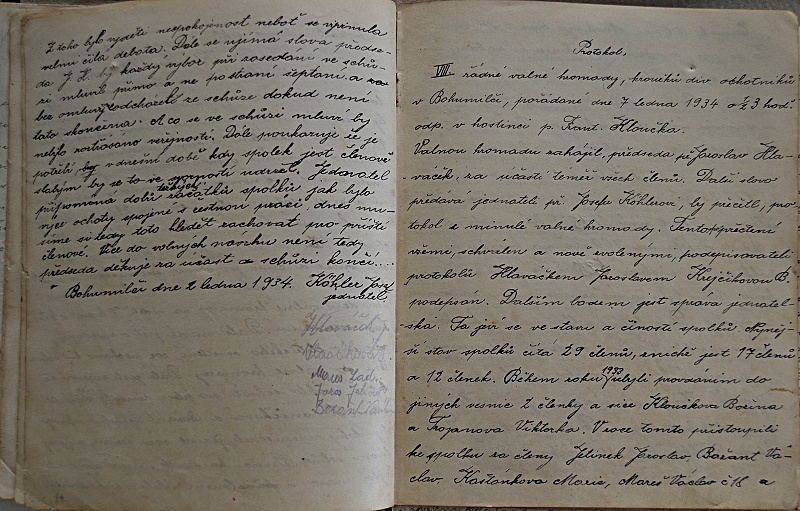 Z toho bylo viděti nespokojenost neboť se vyvinula
velmi čilá debata. Dále se ujímá slova předse-
da J. H. by každý výbor při zasedání ve schů-
zi mluvil přímo a ne postraní šeptani a
bez omluvy odcházeti ze schůze dokud není
tato skončena. A co se ve schůzi mluví by
nebylo roztrošáno veřejnosti. Dále poukazuje že je
potíží by v dnešní době kdy spolek jest členově
slabým by se to ve svornosti udržel. Jednatel
připomíná dobu těžkých začátků spolků jak bylo
nejvíc ochoty spojené s čestnou prací, dnes mu-
síme si tedy toto hledět zachovat pro příští
členové. Více do volných návrhu není tedy
předseda děkuje za účast a schůzi končí...
Bohumilči dne 2 ledna 1934. Köhler Josef
jednatel
Hlaváček
Mareš Lad.
Protokol,
VIII. řádné valné hromady, kroužku div. ochotníků
v Bohumilči, pořádané dne 7 ledna 1934 o ½ 3 hod.
odp. v hostinci p. Frant. Kloučka.
Valnou hromadu zahájil, předseda př. Jaroslav Hla-
váček, za účasti téměř všech členů. Další slovo
předává jednateli př. Josefu Köhlerovi, by přečítl, pro-
tokol s minulé valné hromady. Tento přečtené
vzěmi, schválen a nově zvolenými, podepisovateli
protokolu Hlaváčkem Jaroslavem Krejčíkovou B.
podepsán. Dalším bodem jest správa jednatel-
-ská. Ta jeví se ve stavu a činosti spolků. Nyněj-
ší stav spolků čítá 29 členů, z nichž jest 17 členů
a 12 členek. Během roku 1933 ubyli provdáním do
jiných vesnic 2 členky a sice Kloučkova Božina
a Trojanova Viktorka. V roce tomto přistoupili
ke spolku za členy Jelínek Jaroslav Bažant Vá-
clav, Kaštánkova Marie, Mareš Václav č 18 a